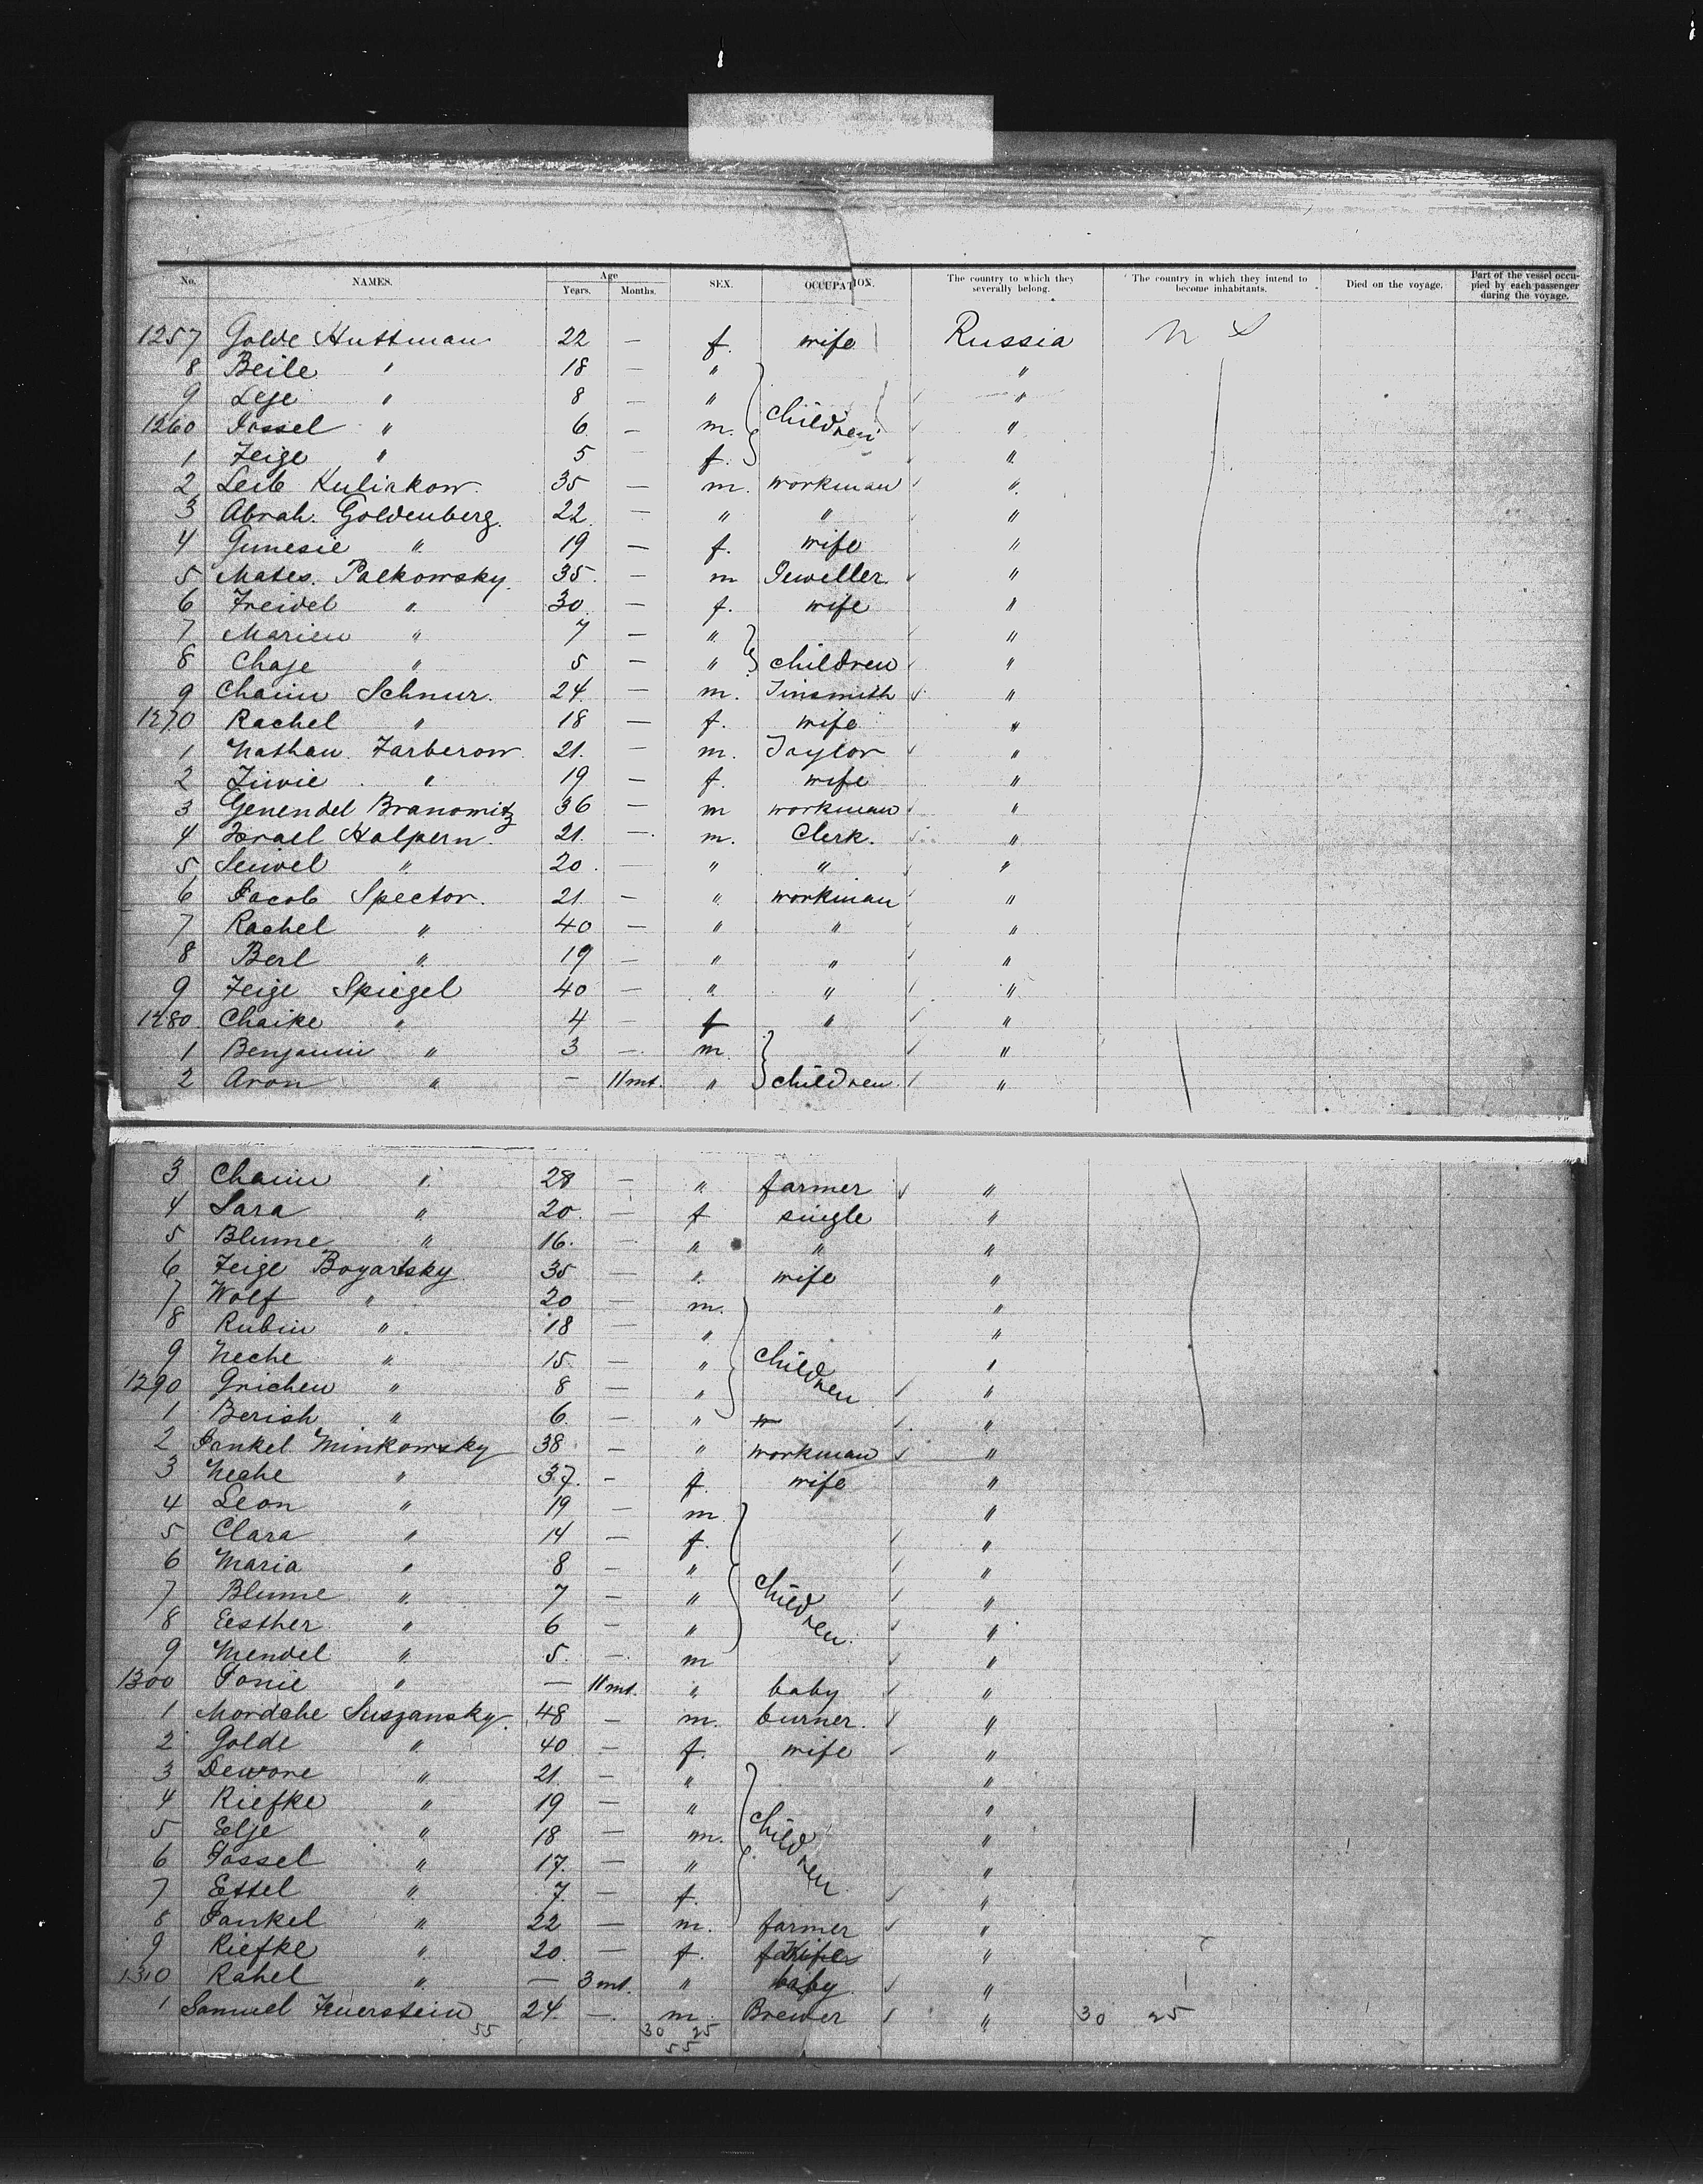 No. NAMES. Age Years. Months. SEX. OCCUPATION. The country to which they severally belong. The country in which they intend to become inhabitants. Died on the voyage. Part of the vessel occupied by each passenger during the voyage.
1257 Golde Huttman 22 — f. wife Russia
8 Beile " 18 — " "
9 Leje " 8 — " children "
1260 Jossel " 6 — m. "
1 Feige " 5 f. "
2 Leib Kulickow 35 — m. workman "
3 Abrah. Goldenberg. 22. — " " "
4 Gunesie " 19 — f. wife "
5 Mates. Palkowsky. 35. — m Jeweller "
6 Freidel " 30. — f. wife "
7 Marien " 7 — " "
8 Chaje " 5 — " children "
9 Chaim Schnur. 24. — m. Tinsmith "
1270 Rachel " 18 — f. wife "
1 Nathan Farberow 21. — m. Taylor "
2 Ziwie " 19 — f. wife "
3 Genendel Branomitz 36 — m workman "
4 Israel Halpern. 21. — m. Clerk. "
5 Seiwel " 20. — " " "
6 Jacob Spector. 21 — " workman "
7 Rachel " 40 — " " "
8 Berl " 19 — " " "
9 Feige Spiegel 40 — " " "
1280. Chaike " 4 — f " "
1 Benjamin " 3 — m. "
2 Aron " — 11 mt. " children. "
3 Chaim " 28 — " farmer "
4 Sara " 20. — f single "
5 Blume " 16. — " " "
6 Feige Boyarsky 35 — " wife "
7 Wolf " 20 — m. "
8 Rubin " 18 — " "
9 Neche " 15. — " children "
1290 Grichen " 8 — " "
1 Berish " 6. — " "
2 Jankel Minkowsky 38 — " workman "
3 Neche " 37. — f. wife "
4 Leon " 19 — m. "
5 Clara " 14 — f. "
6 Maria " 8 — " "
7 Blume " 7 — " children "
8 Eesther " 6 — " "
9 Mendel " 5. — m "
1300 Jonie " — 11 mt. " baby "
1 Mordche Suszansky. 48 — m. burner. "
2 Golde " 40 — f. wife "
3 Dewore " 21. — " "
4 Riefke " 19 — " "
5 Elje " 18 — m. children "
6 Jossel " 17. — " "
7 Ettel " 7. — f. "
8 Jankel " 22 — m. farmer "
9 Riefke " 20. — f. wife "
1310 Rahel " — 3 mt. " baby "
1 Samuel Feuerstein 24. — m Brewer " 30 25
55 30 25
55